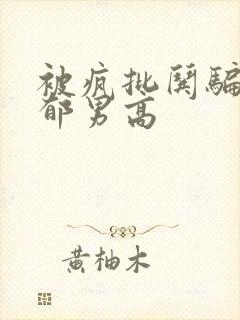 被疯批闺骗
郁男高
黄柚木